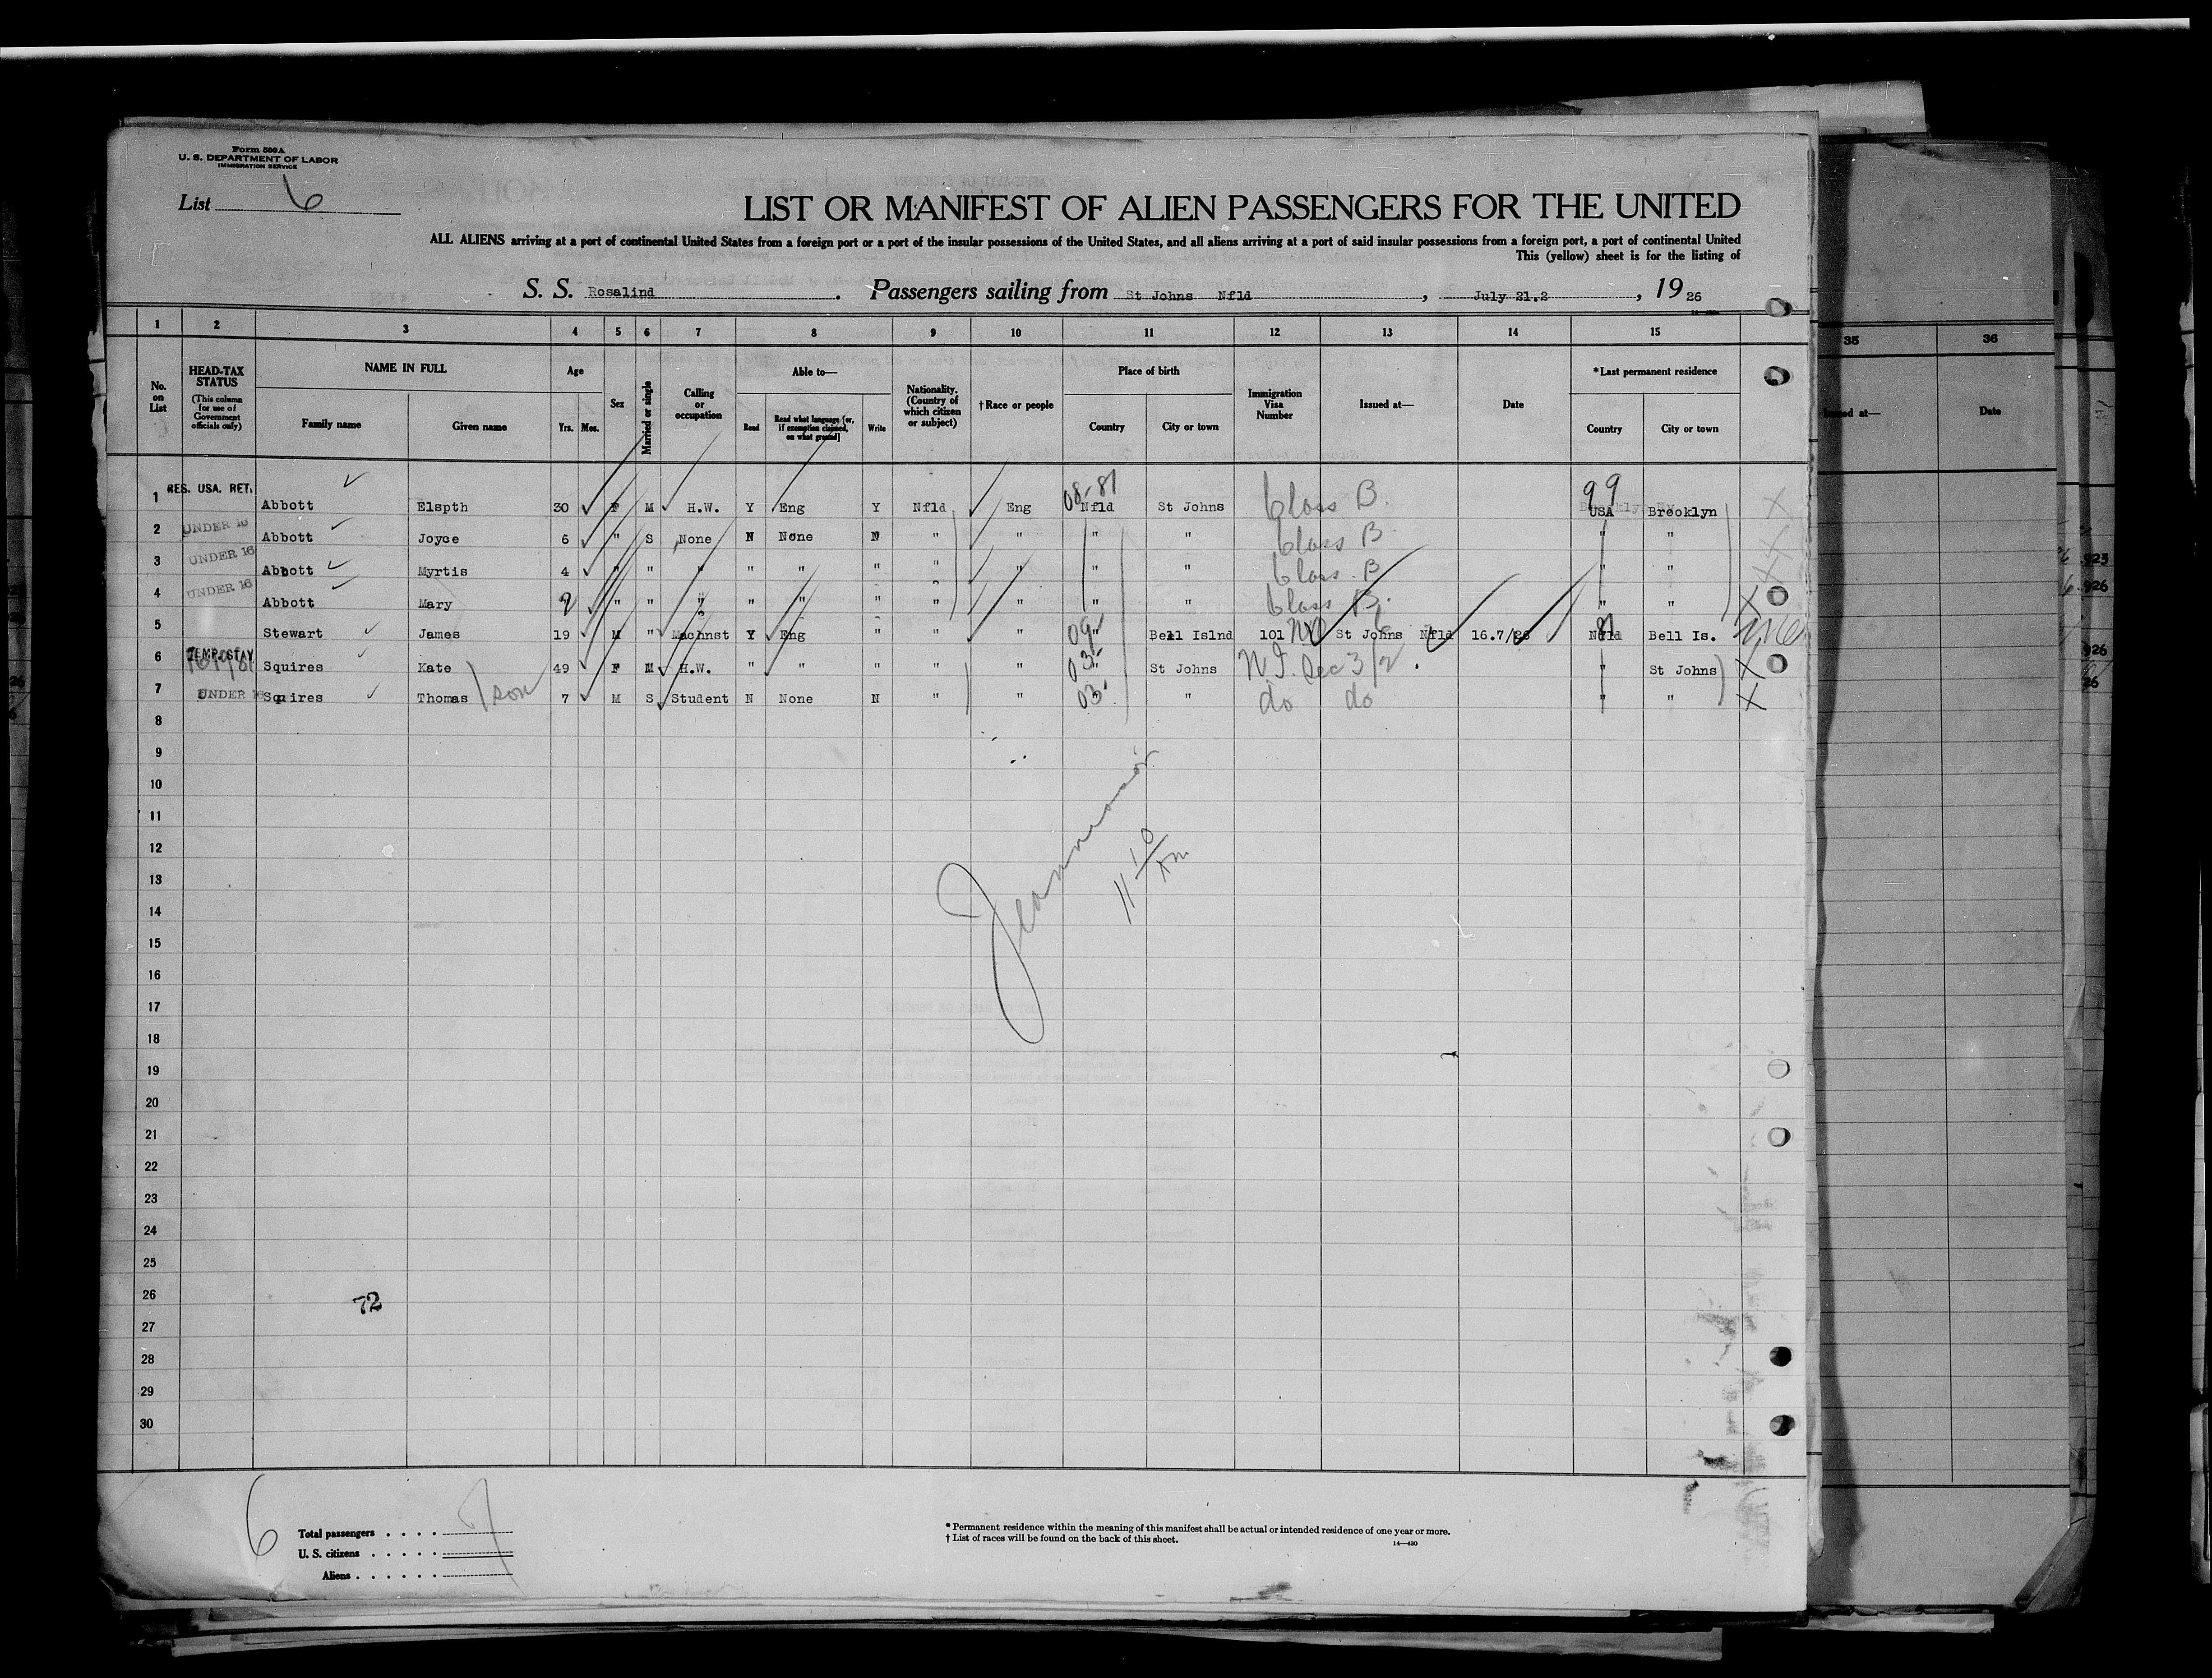 Form 500A
U. S. DEPARTMENT OF LABOR
IMMIGRATION SERVICE
List 6
LIST OR MANIFEST OF ALIEN PASSENGERS FOR THE UNITED
ALL ALIENS arriving at a port of continental United States from a foreign port or a port of the insular possessions of the United States, and all aliens arriving at a port of said insular possessions from a foreign port, a port of continental United
This (yellow) sheet is for the listing of
S. S. Rosalind. Passengers sailing from St Johns Nfld, July 21.2, 1926
1 2 3 4 5 6 7 8 9 10 11 12 13 14 15
35 36
No. on List
HEAD-TAX STATUS (This column for use of Government officials only)
NAME IN FULL
Family name Given name
Age
Yrs. Mos.
Sex
Married or single
Calling or occupation
Able to—
Read Read what language [or, if exemption claimed, on what ground] Write
Nationality. (Country of which citizen or subject)
†Race or people
Place of birth
Country City or town
Immigration Visa Number
Issued at—
Date
*Last permanent residence
Country City or town
Issued at— Date
1 RES. USA. RET. Abbott Elspth 30 F M H.W. Y Eng Y Nfld Eng 08-81 Nfld St Johns Class B. 99 USA Brooklyn X
2 UNDER 16 Abbott Joyce 6 " S None N None N " " " " Class B " " X
3 UNDER 16 Abbott Myrtis 4 " " " " " " " " " " Class B " " X
4 UNDER 16 Abbott Mary 2 " " " " " " " " " " Class B. " " X
5 Stewart James 19 M " Machnst Y Eng " " " 09 " Bell Islnd 101 St Johns Nfld 16.7/26 Nfld Bell Is.
6 TEMP. STAY Squires Kate 49 F M H.W. " " " " " 03 " St Johns N.I. Sec 3/2 " St Johns X
7 UNDER 16 Squires Thomas son 7 M S Student N None N " " 03 " do do " " X
8
9
10
11
12
13
14
15
16
17
18
19
20
21
22
23
24
25
26
27
28
29
30
11 10 AM
72
6
Total passengers . . . . 7
U. S. citizens . . . . .
Aliens . . . . . .
* Permanent residence within the meaning of this manifest shall be actual or intended residence of one year or more.
† List of races will be found on the back of this sheet.
14—430